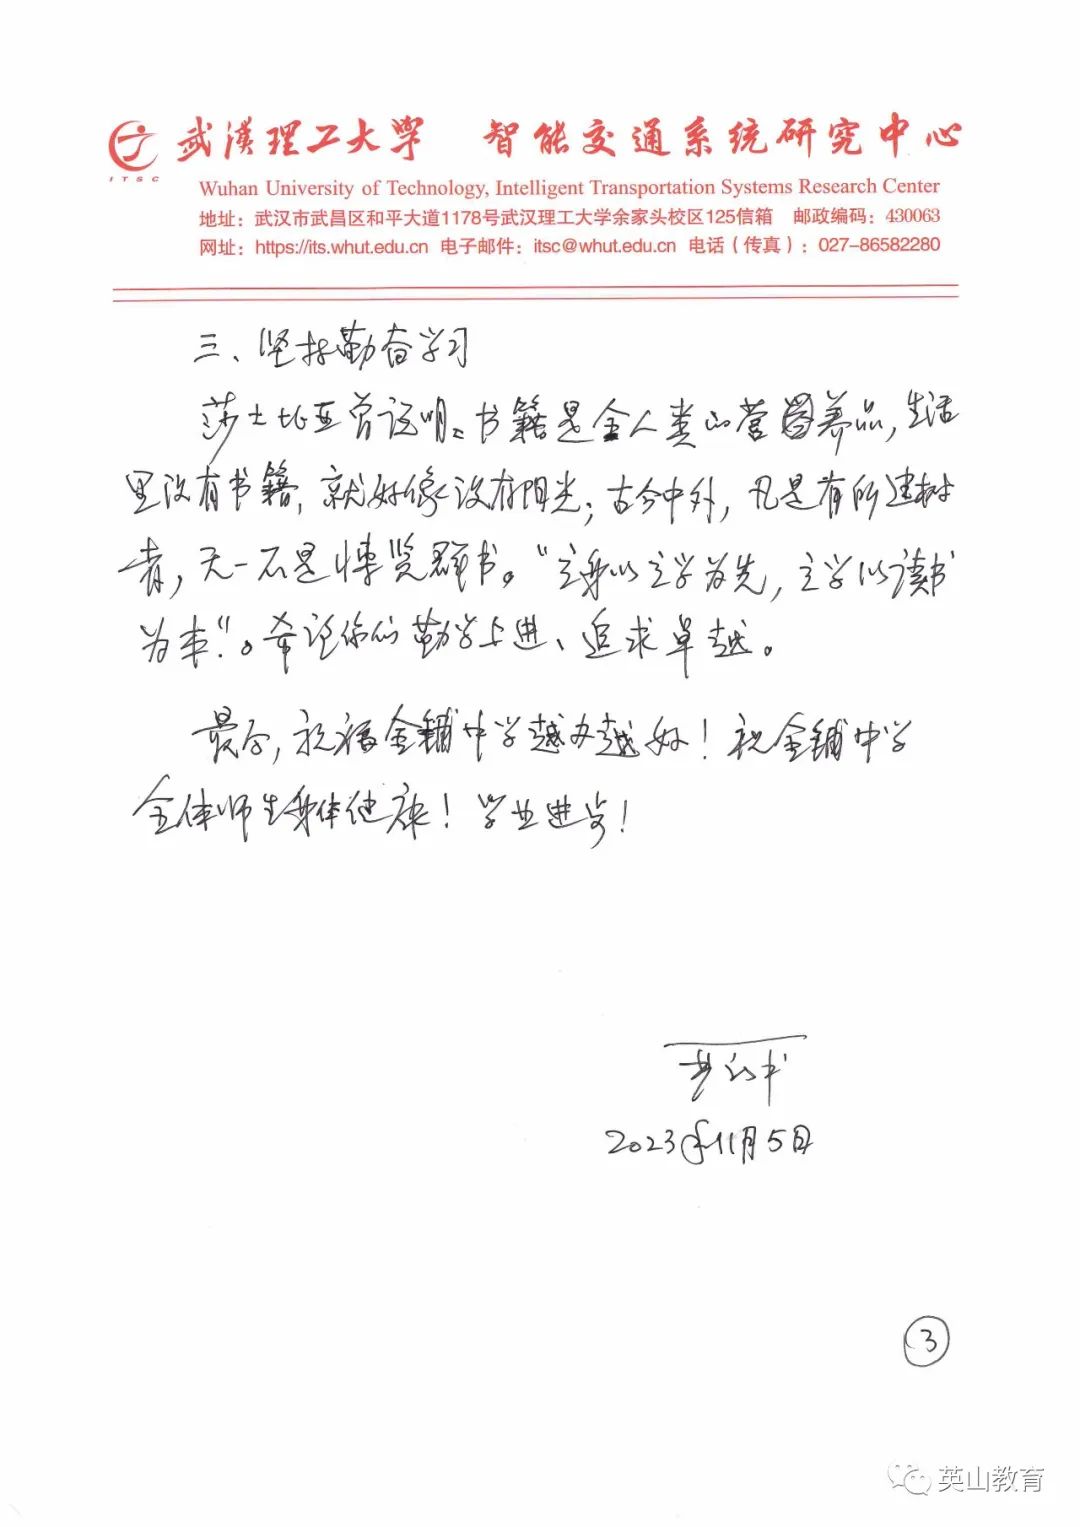 武汉理工大学 智能交通系统研究中心
ITSC
Wuhan University of Technology, Intelligent Transportation Systems Research Center
地址：武汉市武昌区和平大道1178号武汉理工大学余家头校区125信箱 邮政编码：430063
网址：https://its.whut.edu.cn 电子邮件：itsc@whut.edu.cn 电话（传真）：027-86582280
三、坚持勤奋学习
莎士比亚曾说明：书籍是全人类的营养品，生活
里没有书籍，就好像没有阳光；古今中外，凡是有所建树
者，无一不是博览群书。“立身以立学为先，立学以读书
为本”。希望你们勤学上进、追求卓越。
最后，祝福金铺中学越办越好！祝金铺中学
全体师生身体健康！学业进步！
2023年11月5日
3
英山教育